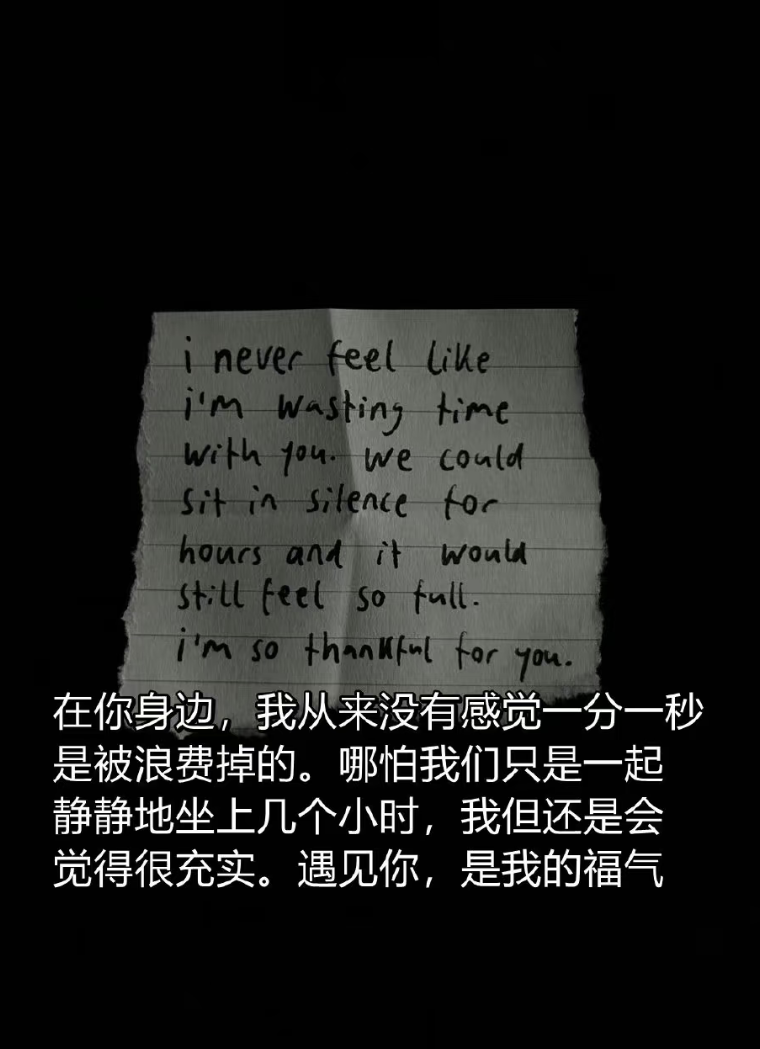 i never feel like
i'm wasting time
with you. we could
sit in silence for
hours and it would
still feel so full.
i'm so thankful for you.
在你身边，我从来没有感觉一分一秒
是被浪费掉的。哪怕我们只是一起
静静地坐上几个小时，我但还是会
觉得很充实。遇见你，是我的福气